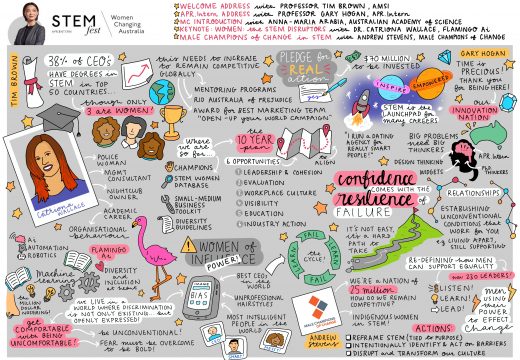 STEM fest
Women
Changing
Australia
WELCOME ADDRESS with PROFESSOR TIM BROWN, AMSI
APR.Intern ADDRESS with PROFESSOR GARY HOGAN, APR.Intern
MC INTRODUCTION with ANNA-MARIA ARABIA, AUSTRALIAN ACADEMY OF SCIENCE
KEYNOTE: WOMEN: the STEM DISRUPTORS with DR. CATRIONA WALLACE, FLAMINGO AI
MALE CHAMPIONS OF CHANGE IN STEM with ANDREW STEVENS, MALE CHAMPIONS OF CHANGE
TIM BROWN
38% OF CEO's
HAVE DEGREES in
STEM in TOP
50 COUNTRIES...
though ONLY
3 are WOMEN!
this NEEDS to INCREASE
for REMAIN COMPETITIVE
GLOBALLY
MENTORING PROGRAMS
RID AUSTRALIA OF PREJUDICE
AWARD for BEST MARKETING TEAM
"OPEN-UP your WORLD CAMPAIGN"
PLEDGE for
REAL
action
$70 MILLION
to be INVESTED
INSPIRE
EMPOWERED
STEM is the
LAUNCHPAD for
many CAREERS
GARY HOGAN
TIME is
PRECIOUS!
THANK you
for BEING HERE!
our
INNOVATION
NATION
APR.Intern
THINKERS
CATRIONA
WALLACE
POLICE
WOMAN
MGMT
CONSULTANT
NIGHTCLUB
OWNER
ACADEMIC
CAREER
Where
we are
so far...
CHAMPIONS
STEM WOMEN
DATABASE
SMALL-MEDIUM
BUSINESS
TOOLKIT
DIVERSITY
GUIDELINES
the
10 YEAR
plan
to
ALIGN
6 OPPORTUNITIES
LEADERSHIP & COHESION
EVALUATION
WORKPLACE CULTURE
VISIBILITY
EDUCATION
INDUSTRY ACTION
"I RUN a DATING
AGENCY for
REALLY SMART
PEOPLE!"
BIG PROBLEMS
need BIG
THINKERS.
DESIGN THINKING
WIDGETS
confidence
COMES WITH THE
resilience of
FAILURE
IT'S NOT EASY,
it's a HARD
PATH to
TAKE
RELATIONSHIPS
ESTABLISHING
UNCONVENTIONAL
CONDITIONS that
WORK for YOU
LIVING APART,
STILL SUPPORTING
RE-DEFINING how MEN
CAN SUPPORT EQUALITY
now 230 LEADERS!
LISTEN!
LEARN!
LEAD!
men
USING their
POWER to
EFFECT
change
ORGANISATIONAL
behaviour
AUTOMATION
ROBOTICS
FLAMINGO AI
Machine learning
the MILLION
DOLLAR
WEDDING!
DIVERSITY
and
INCLUSION
WE LIVE in a
WORLD WHERE DISCRIMINATION
is NOT ONLY EXISTING.. BUT
OPENLY EXPRESSED!
get
COMFORTABLE with BEING
UNCOMFORTABLE!
be UNCONVENTIONAL!
FEAR must be OVERCOME
to BE BOLD!
WOMEN of
INFLUENCE
POWER!
BIAS
BEST CEOs
in the
WORLD
UNPROFESSIONAL
HAIRSTYLES
MOST INTELLIGENT
PEOPLE in the
WORLD
FAIL
LEARN
FAIL
LEARN
the
CYCLE!
WE'RE A NATION of
25 million
HOW DO WE REMAIN
COMPETITIVE?
INDIGENOUS WOMEN
in STEM!
ANDREW
Stevens
ACTIONS:
REFRAME STEM (TIED to PURPOSE)
INTENTIONALLY IDENTIFY & ACT ON BARRIERS
DISRUPT and TRANSFORM OUR CULTURE